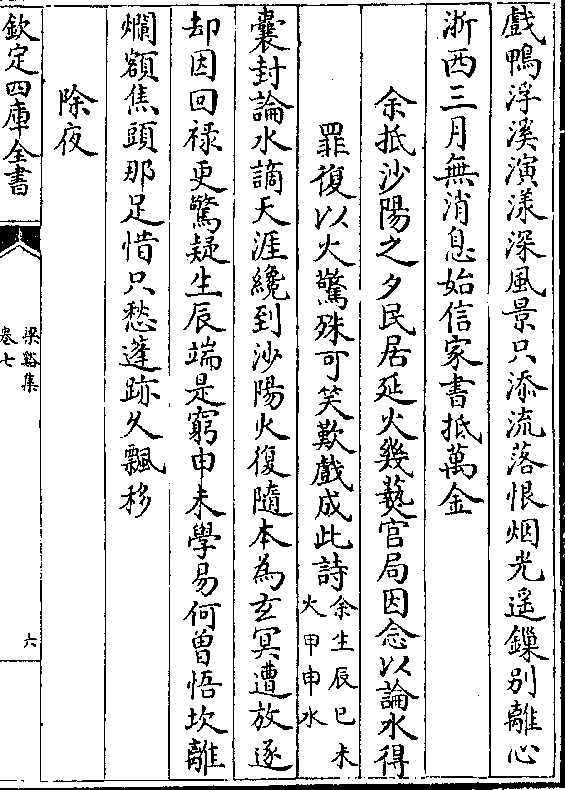 戲鴨浮溪演漾深風景只添流落恨烟光遥鏁别離心
浙西三月無消息始信家書抵萬金
余抵沙陽之夕民居延火幾爇官局因念以論水得
罪復以火驚殊可笑歎戲成此詩余生辰已未
火甲申水
囊封論水謫天涯纔到沙陽火復隨本為玄冥遭放逐
却因回禄更驚疑生辰端是窮申未學易何曾悟坎離
爛額焦頭那足惜只愁蓬跡久飄移
除夜
欽定四庫全書
梁谿集
卷七
六